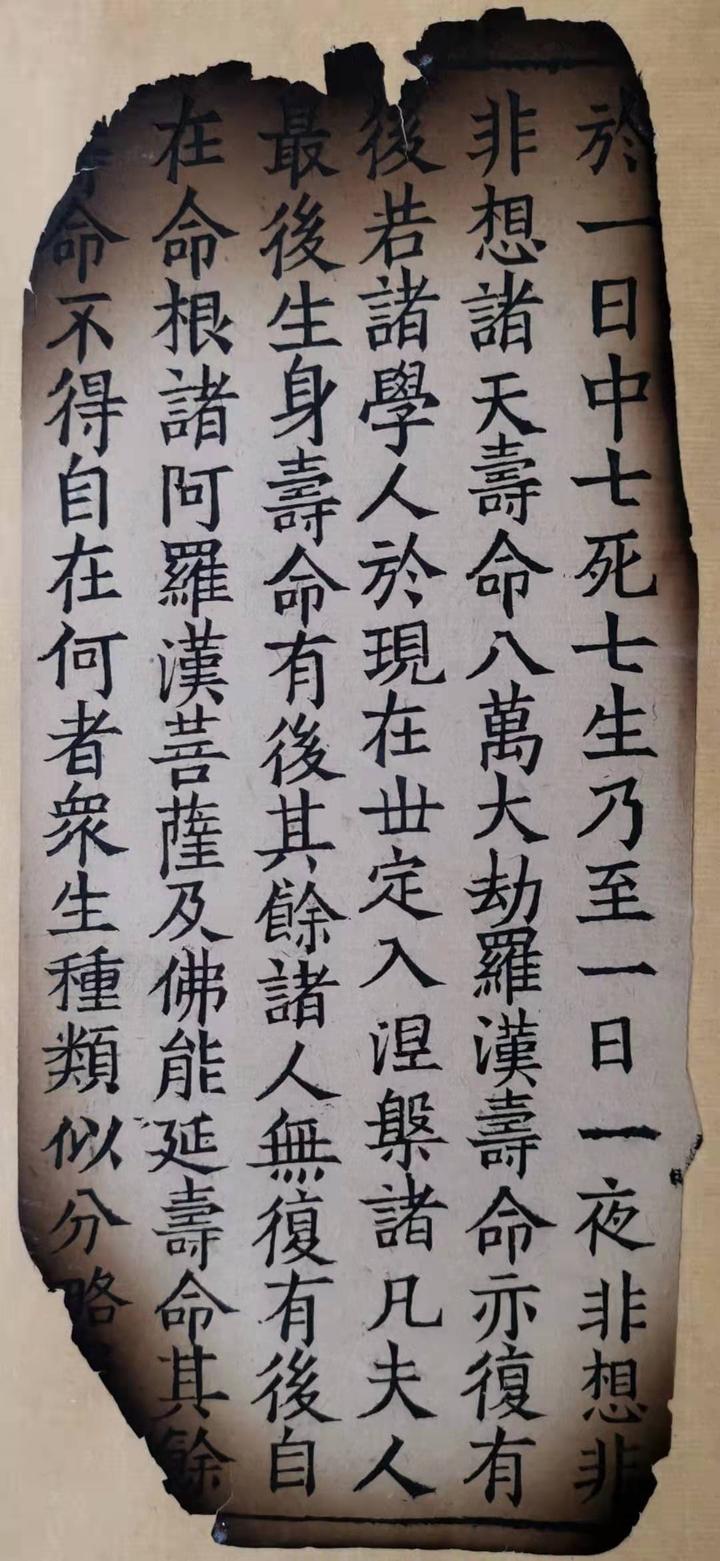 於一日中七死七生乃至一日一夜非想非
非想諸天壽命八萬大劫羅漢壽命亦復有
後若諸學人於現在世定入涅槃諸凡夫人
最後生身壽命有後其餘諸人無復有後自
在命根諸阿羅漢菩薩及佛能延壽命其餘
命不得自在何者眾生種類似分略